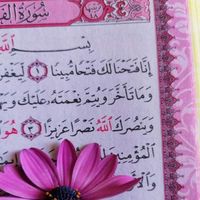 سُورَةُ الفَ
بِسْمِ اللَّهِ
إِنَّا فَتَحْنَا لَكَ فَتْحًا مُبِينًا ١ لِيَغْفِرَ
وَمَا تَأَخَّرَ وَيُتِمَّ نِعْمَتَهُ عَلَيْكَ وَيَهْ
وَيَنْصُرَكَ اللَّهُ نَصْرًا عَزِيزًا ٣ هُوَ
الْمُؤْمِنِينَ